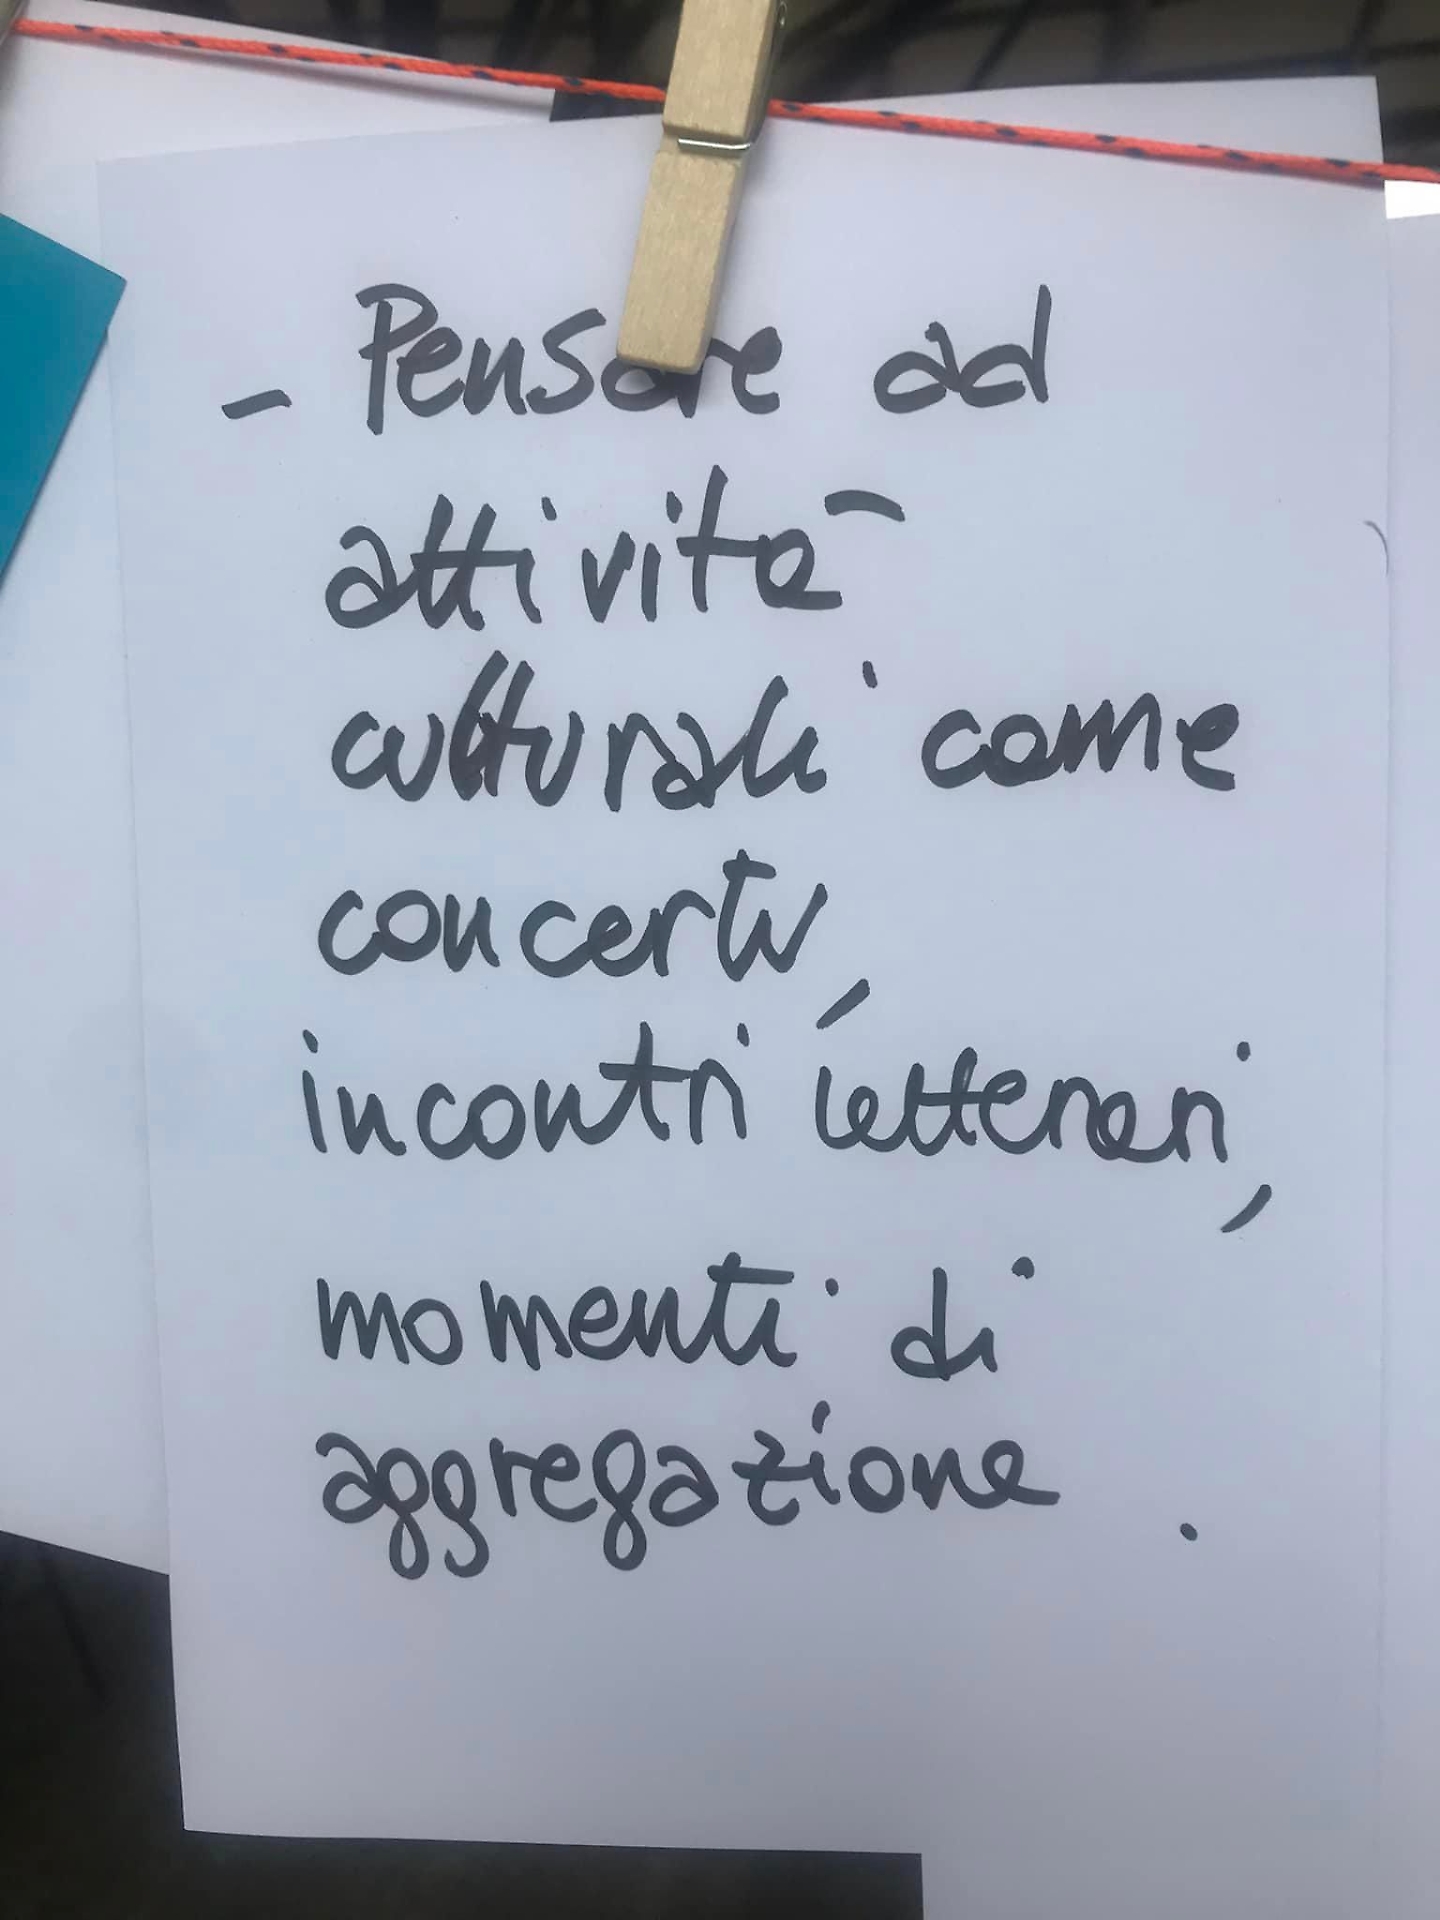 - Pensare ad
attività
culturali come
concerti,
incontri letterari,
momenti di
aggregazione.